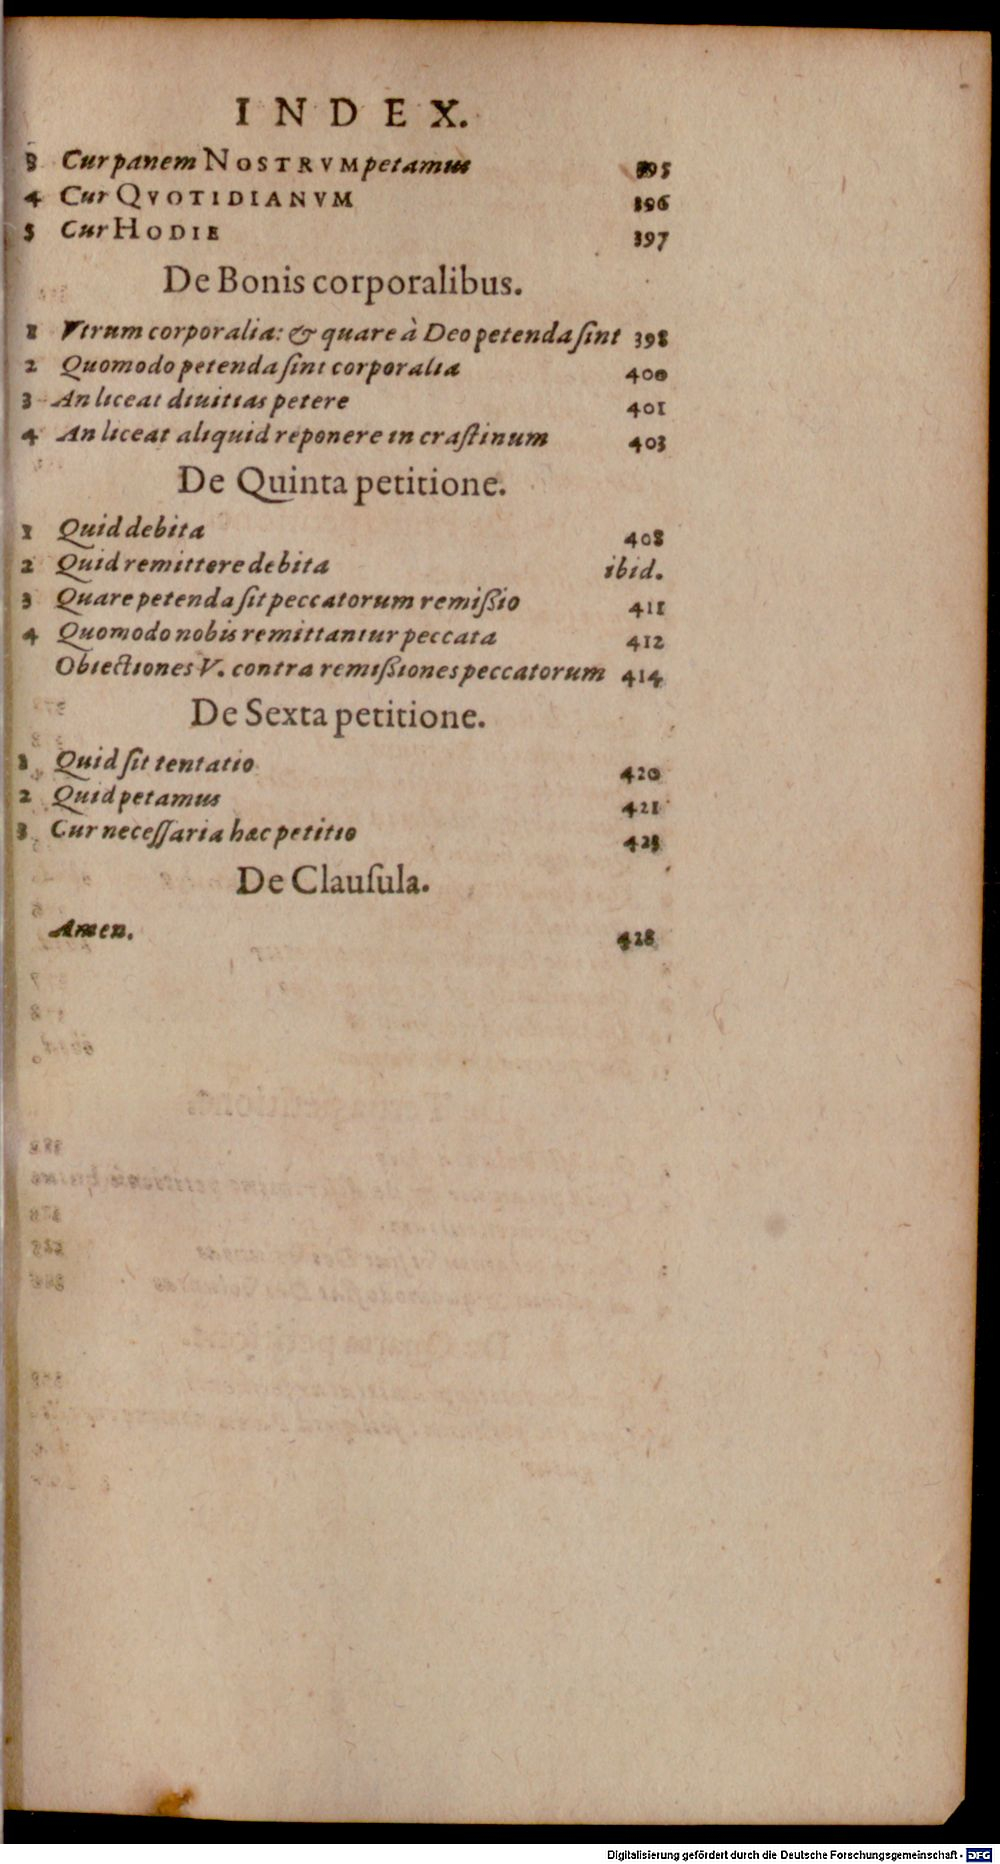 INDEX.
3 Cur panem NOSTRVM petamus 395
4 Cur QVOTIDIANVM 396
5 Cur HODIE 397
De Bonis corporalibus.
1 Vtrum corporalia: & quare à Deo petenda ſint 398
2 Quomodo petenda ſint corporalia 400
3 An liceat diuitias petere 401
4 An liceat aliquid reponere in craſtinum 403
De Quinta petitione.
1 Quid debita 408
2 Quid remittere debita ibid.
3 Quare petenda ſit peccatorum remiſsio 411
4 Quomodo nobis remittantur peccata 412
Obiectiones V. contra remiſsiones peccatorum 414
De Sexta petitione.
1 Quid ſit tentatio 420
2 Quid petamus 421
3 Cur neceſſaria hæc petitio 423
De Clauſula.
Amen. 428
Digitalisierung gefördert durch die Deutsche Forschungsgemeinschaft - DFG